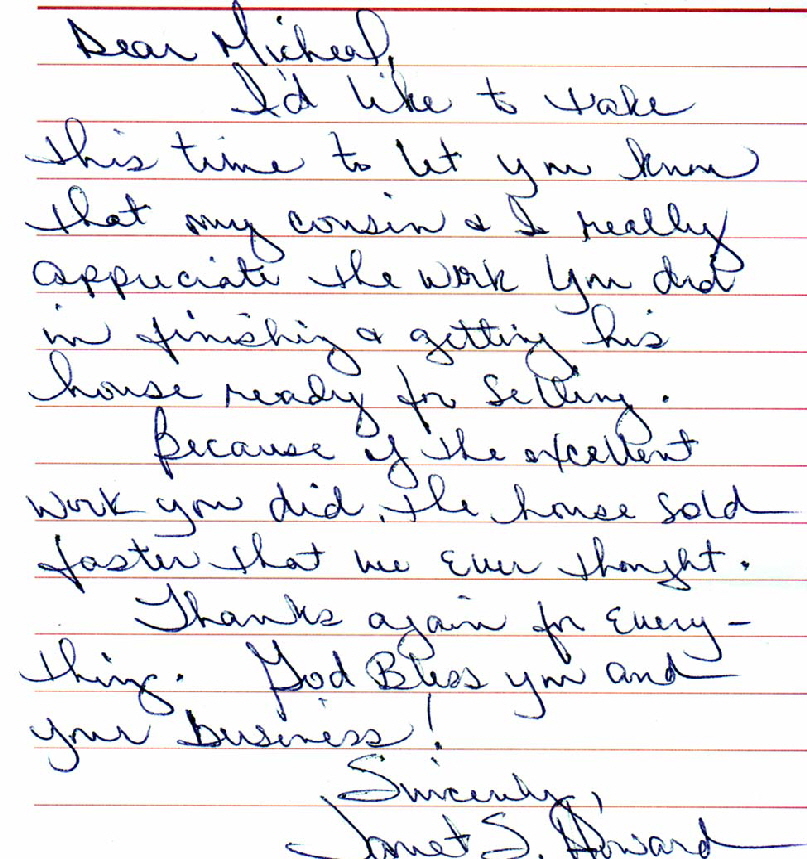 Dear Micheal,
I'd like to take
this time to let you know
that my cousin & I really
appreciate the work you did
in finishing & getting his
house ready for selling.
Because of the excellent
work you did, the house sold
faster that we ever thought.
Thanks again for every-
thing. God Bless you and
your business!
Sincerely,
Janet S. Howard